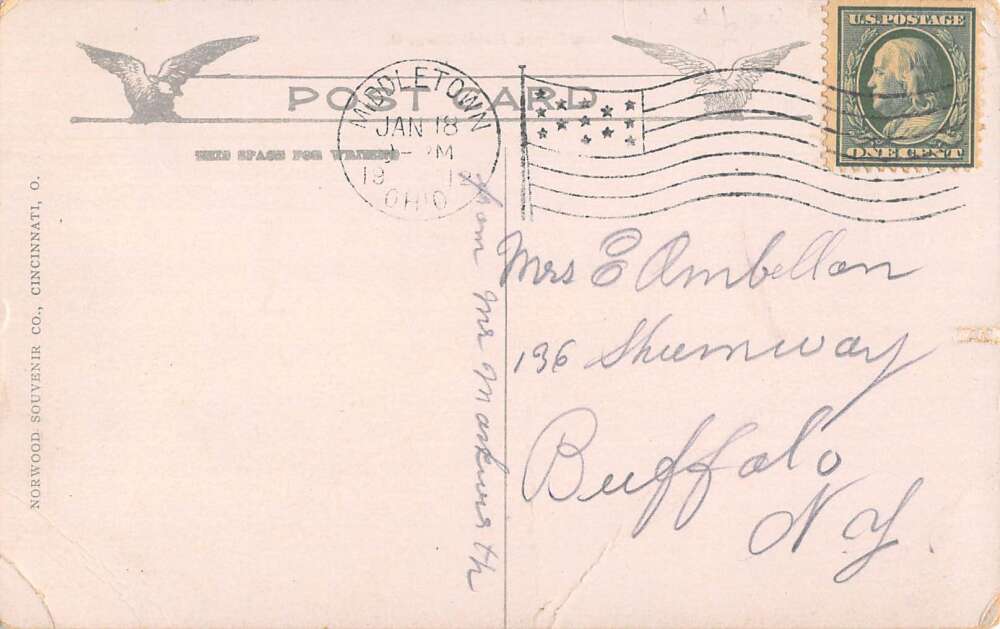 POST CARD
THIS SPACE FOR WRITING
MIDDLETOWN
JAN 18
PM
19 1
OHIO
U.S. POSTAGE
ONE CENT
NORWOOD SOUVENIR CO., CINCINNATI, O.
from Mr
Mrs E Ambellan
136 Shumway
Buffalo
N Y.